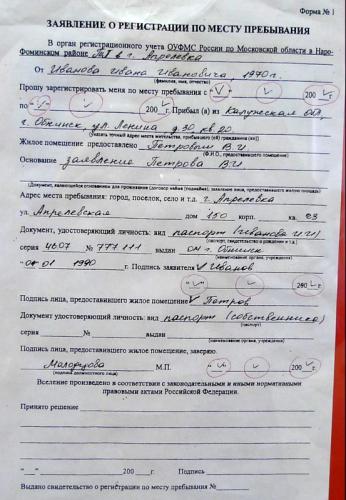 Форма № 1
ЗАЯВЛЕНИЕ О РЕГИСТРАЦИИ ПО МЕСТУ ПРЕБЫВАНИЯ
В орган регистрационного учета ОУФМС России по Московской области в Наро-
Фоминском районе ТП в г. Апрелевка
От Иванова Ивана Ивановича 1970г.
(фамилия, имя, отчество)
Прошу зарегистрировать меня по месту пребывания с «V» V 200 V г.
по «V» V 200 V г. Прибыл (а) из Калужская обл,
г. Обнинск, ул. Ленина д. 30 кв. 20
(указать точный адрес места жительства, прибывшего (ей) гражданина (ки))
Жилое помещение предоставлено Петровым В.И
(Ф.И.О., предоставившего помещение)
Основание заявление Петрова В.И
(Документ, являющийся основанием для проживания (договор найма (поднайма), заявление лица, предоставившего жилую площадь)
Адрес места пребывания: город, поселок, село и т.д. г. Апрелевка
ул. Апрелевская дом 150 корп. кв. 83
Документ, удостоверяющий личность: вид паспорт (Иванова И.И)
(паспорт, свидетельство о рождении и т.д.)
серия 4607 № 777111 выдан ОМ г. Обнинск
(наименование органа, учреждения)
01 01 1990 г. Подпись заявителя V Иванов
«V» V 200 V г.
Подпись лица, предоставившего жилое помещение V Петров
Документ удостоверяющий личность: вид паспорт (собственника)
(паспорт)
серия № выдан
(наименование органа, учреждения)
Подпись лица, предоставившего жилое помещение, заверяю.
М.П. «V» V 200 V г.
(подпись должностного лица)
Вселение произведено в соответствии с законодательными и иными нормативными
правовыми актами Российской Федерации.
Принято решение
«__» 200 г. Подпись
Выдано свидетельство о регистрации по месту пребывания №